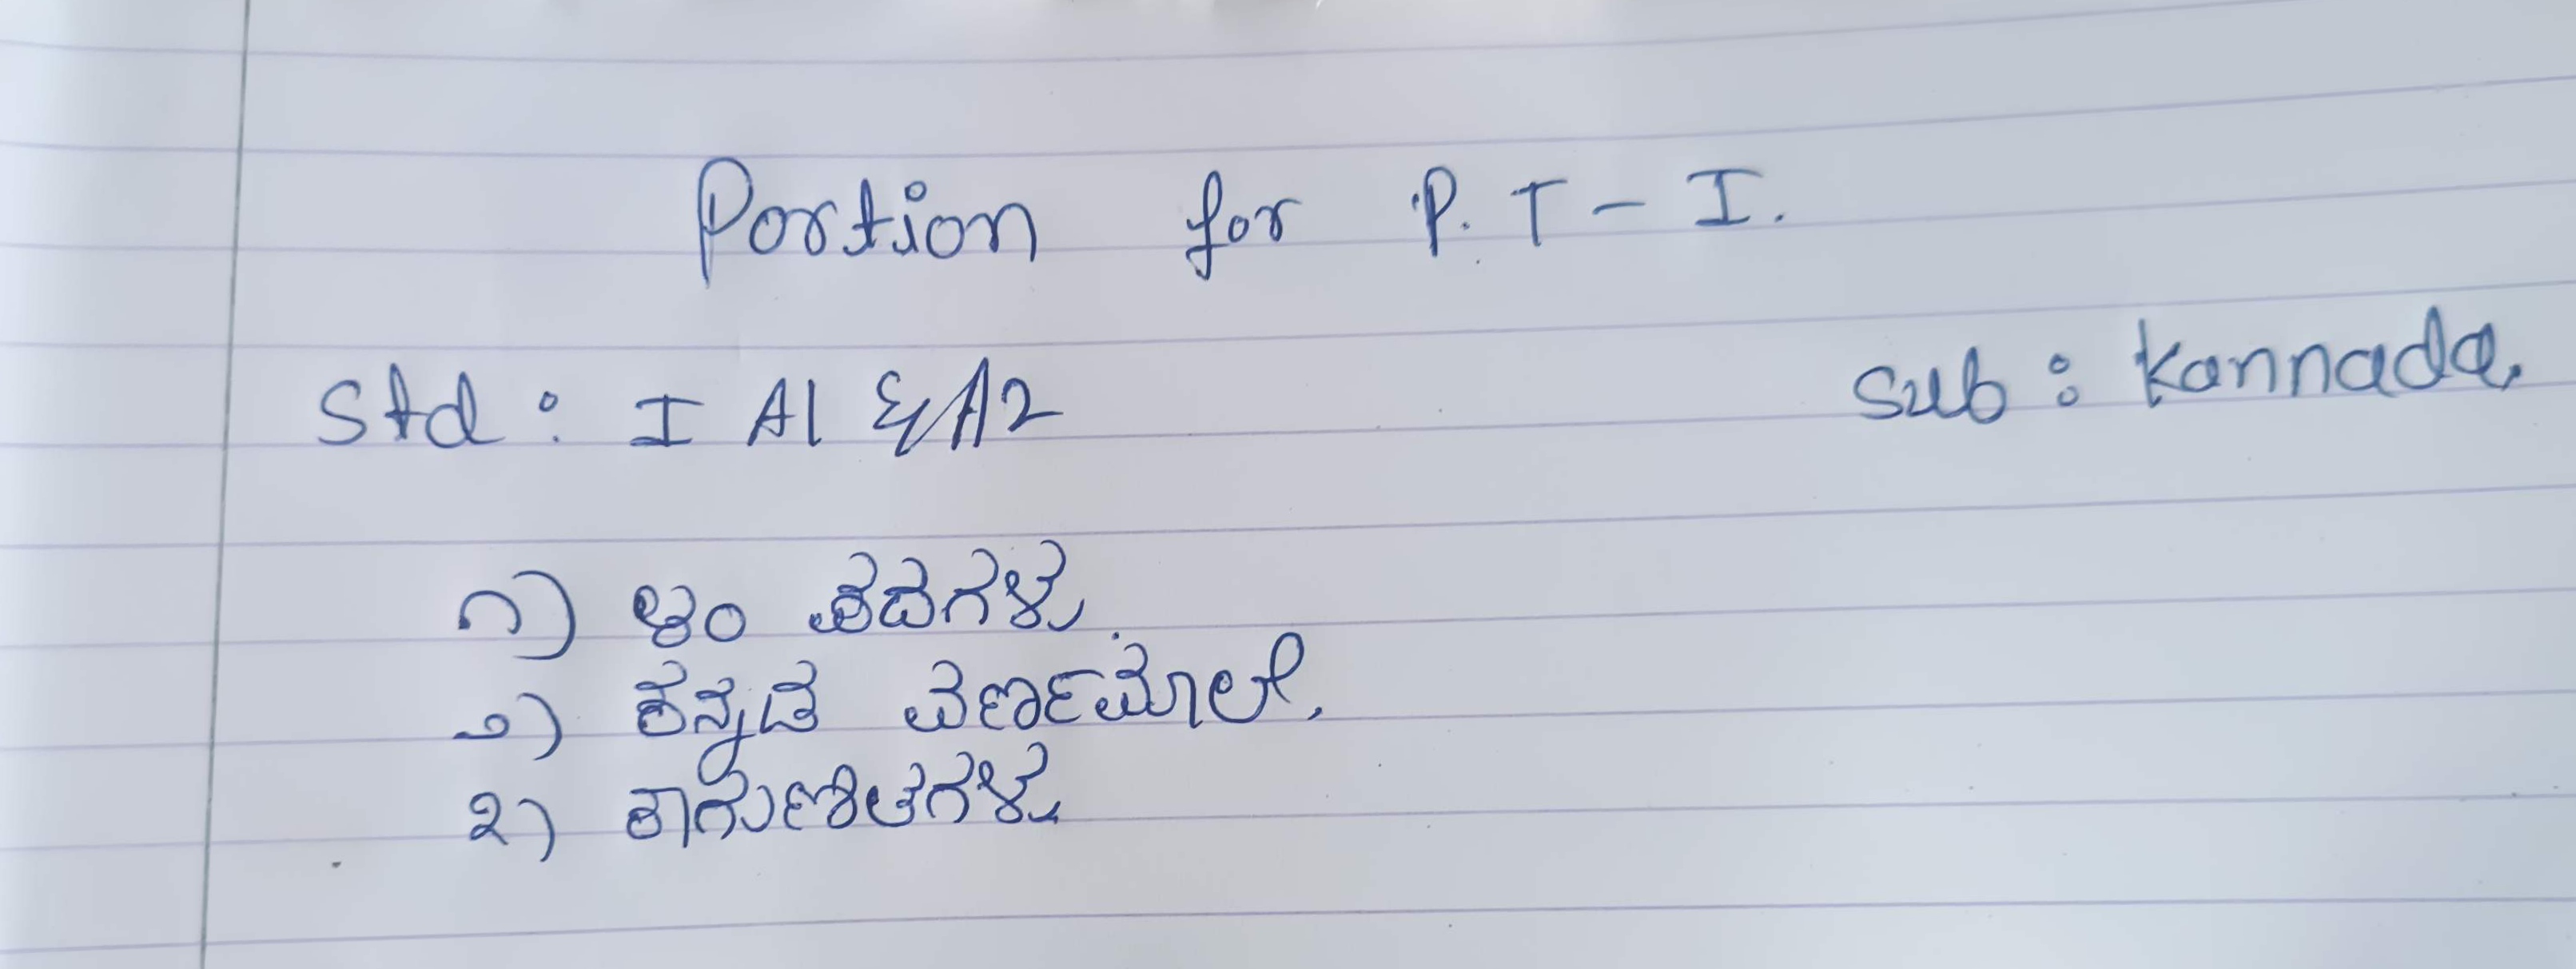 Portion for P. T - I.
Std : I A1 & A2 Sub : Kannada.
೧) ೪೦ ಪದಗಳು
೨) ಕನ್ನಡ ವರ್ಣಮಾಲೆ.
೩) ಕಾಗುಣಿತಗಳು